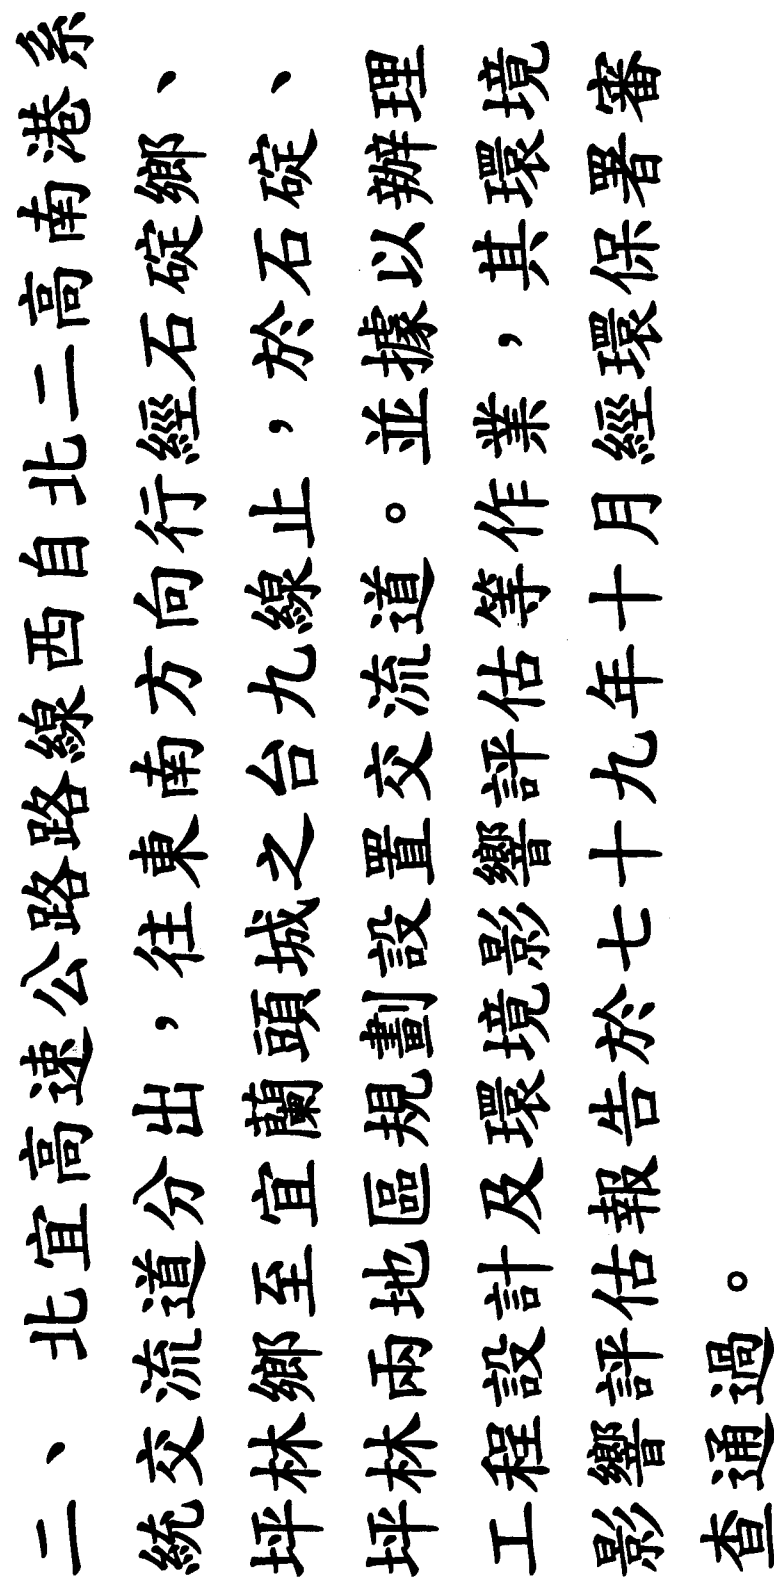 二、北宜高速公路路線西自北二高南港系
統交流道分出，往東南方向行經石碇鄉、
坪林鄉至宜蘭頭城之台九線止，於石碇、
坪林兩地區規劃設置交流道。並據以辦理
工程設計及環境影響評估等作業，其環境
影響評估報告於七十九年十月經環保署審
查通過。